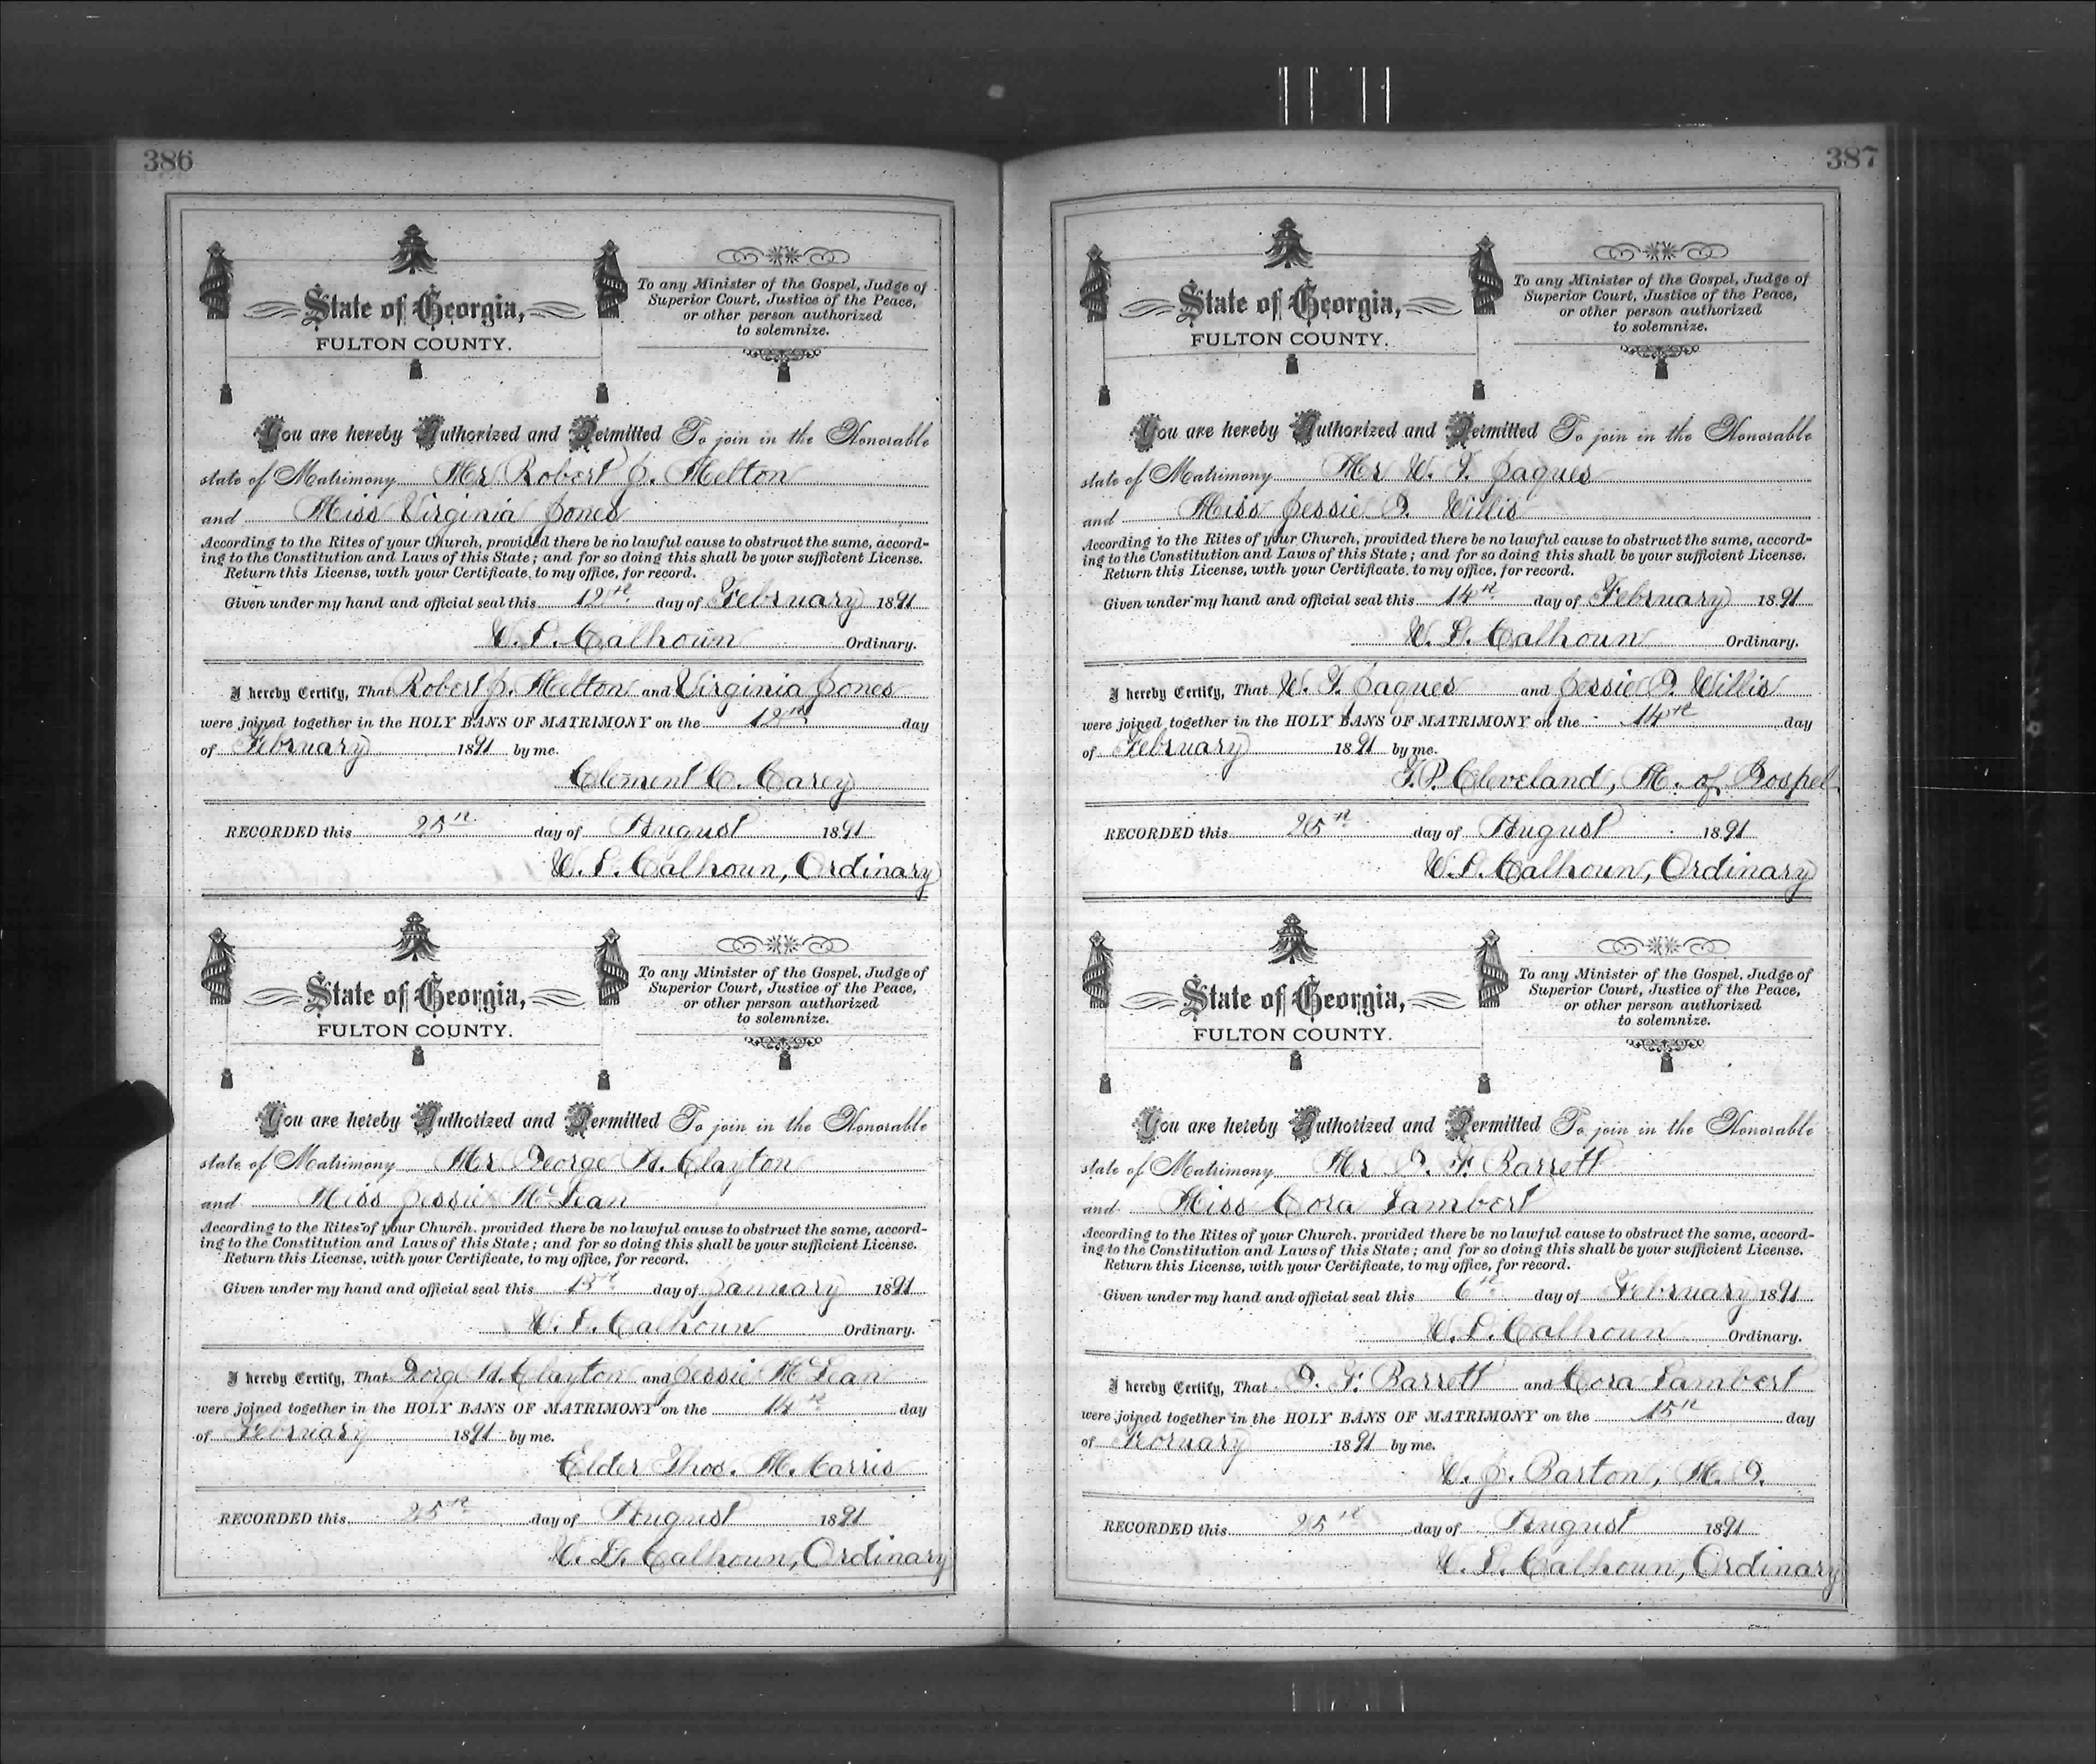 386
State of Georgia,
FULTON COUNTY.
To any Minister of the Gospel, Judge of
Superior Court, Justice of the Peace,
or other person authorized
to solemnize.
You are hereby Authorized and Permitted To join in the Honorable
state of Matrimony Mr Robert J. Melton
and Miss Virginia Jones
According to the Rites of your Church, provided there be no lawful cause to obstruct the same, accord-
ing to the Constitution and Laws of this State; and for so doing this shall be your sufficient License.
Return this License, with your Certificate, to my office, for record.
Given under my hand and official seal this 12th day of February 1891
W. L. Calhoun Ordinary.
I hereby Certify, That Robert J. Melton and Virginia Jones
were joined together in the HOLY BANS OF MATRIMONY on the 12th day
of February 1891 by me.
Clement C. Carey
RECORDED this 25th day of August 1891
W. L. Calhoun, Ordinary
State of Georgia,
FULTON COUNTY.
To any Minister of the Gospel, Judge of
Superior Court, Justice of the Peace,
or other person authorized
to solemnize.
You are hereby Authorized and Permitted To join in the Honorable
state of Matrimony Mr George H. Clayton
and Miss Jessie McLean
According to the Rites of your Church, provided there be no lawful cause to obstruct the same, accord-
ing to the Constitution and Laws of this State; and for so doing this shall be your sufficient License.
Return this License, with your Certificate, to my office, for record.
Given under my hand and official seal this 13th day of January 1891
W. L. Calhoun Ordinary.
I hereby Certify, That Gorge H. Clayton and Jessie McLean
were joined together in the HOLY BANS OF MATRIMONY on the 14th day
of February 1891 by me.
Elder Thos. M. Harris
RECORDED this 25th day of August 1891
W. L. Calhoun, Ordinary
387
State of Georgia,
FULTON COUNTY.
To any Minister of the Gospel, Judge of
Superior Court, Justice of the Peace,
or other person authorized
to solemnize.
You are hereby Authorized and Permitted To join in the Honorable
state of Matrimony Mr W. T. Jaques
and Miss Jessie D. Willis
According to the Rites of your Church, provided there be no lawful cause to obstruct the same, accord-
ing to the Constitution and Laws of this State; and for so doing this shall be your sufficient License.
Return this License, with your Certificate, to my office, for record.
Given under my hand and official seal this 14th day of February 1891
W. L. Calhoun Ordinary.
I hereby Certify, That W. T. Jaques and Jessie D. Willis
were joined together in the HOLY BANS OF MATRIMONY on the 14th day
of February 1891 by me.
T. P. Cleveland, M. of Gospel
RECORDED this 25th day of August 1891
W. L. Calhoun, Ordinary
State of Georgia,
FULTON COUNTY.
To any Minister of the Gospel, Judge of
Superior Court, Justice of the Peace,
or other person authorized
to solemnize.
You are hereby Authorized and Permitted To join in the Honorable
state of Matrimony Mr D. F. Barrett
and Miss Cora Lambert
According to the Rites of your Church, provided there be no lawful cause to obstruct the same, accord-
ing to the Constitution and Laws of this State; and for so doing this shall be your sufficient License.
Return this License, with your Certificate, to my office, for record.
Given under my hand and official seal this 6th day of February 1891
W. L. Calhoun Ordinary.
I hereby Certify, That D. F. Barrett and Cora Lambert
were joined together in the HOLY BANS OF MATRIMONY on the 15th day
of February 1891 by me.
W. J. Barton, M. G.
RECORDED this 25th day of August 1891
W. L. Calhoun, Ordinary